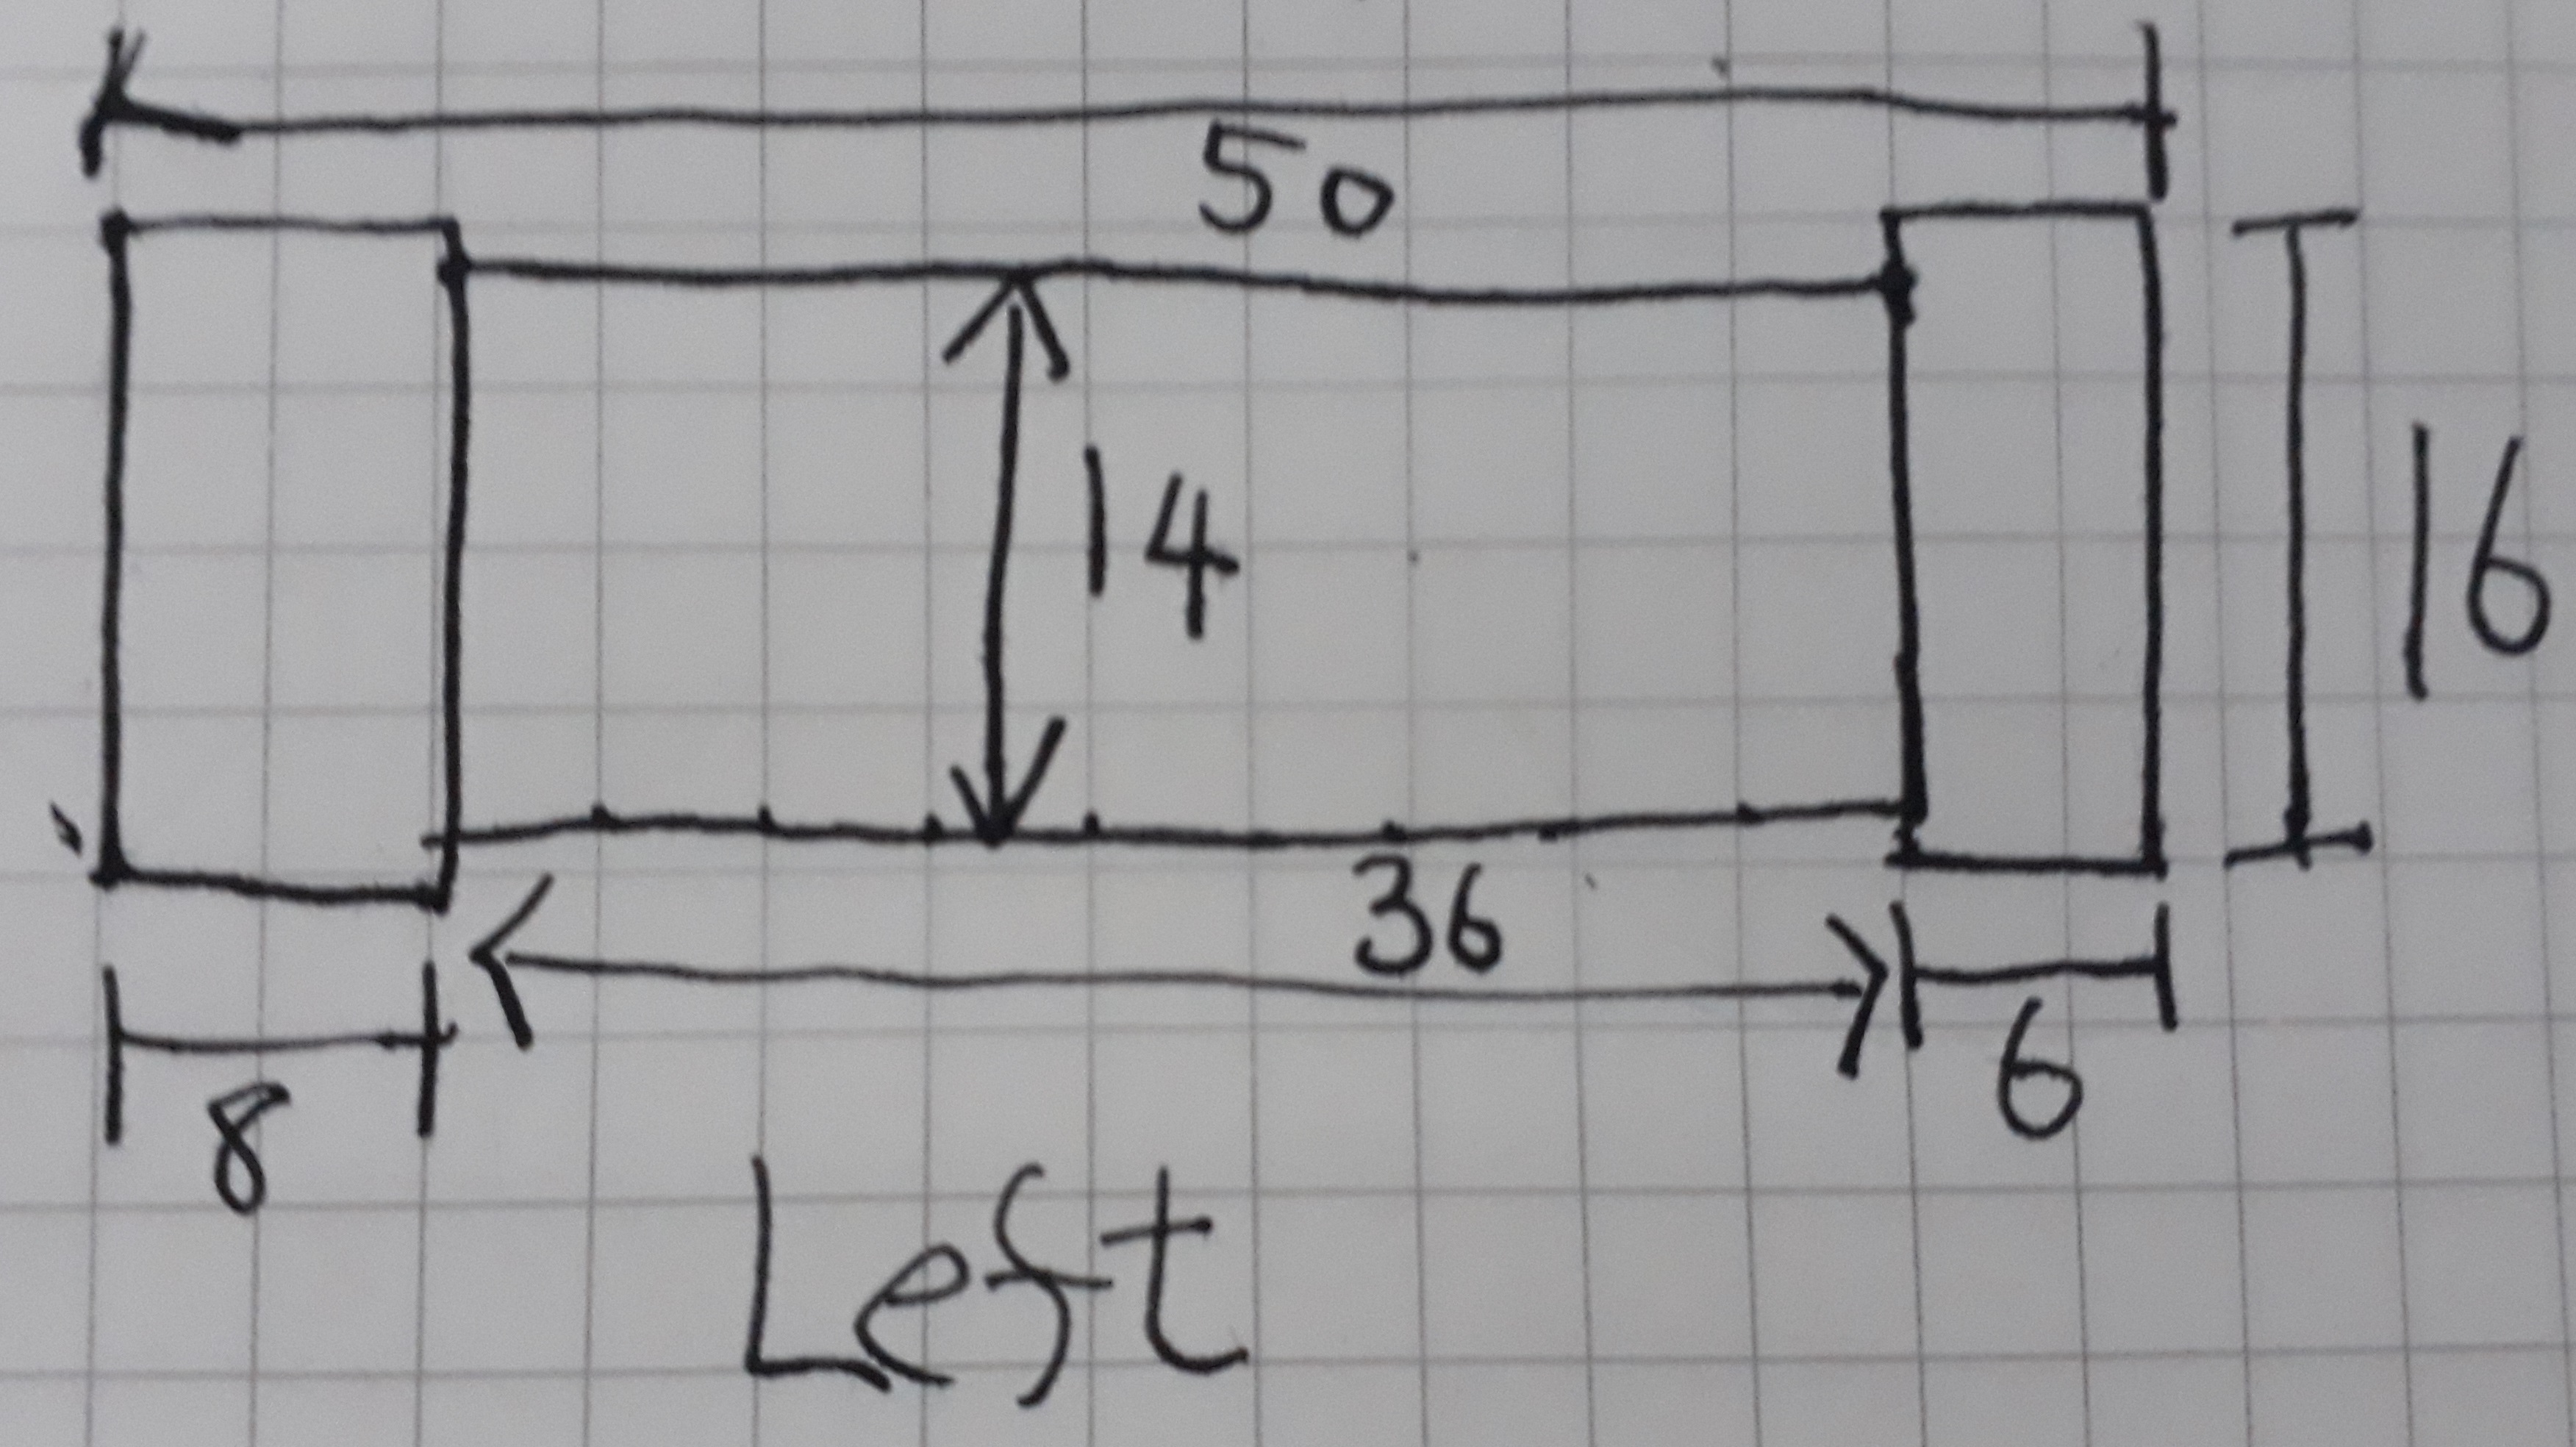 50
14
16
36
6
8
Left